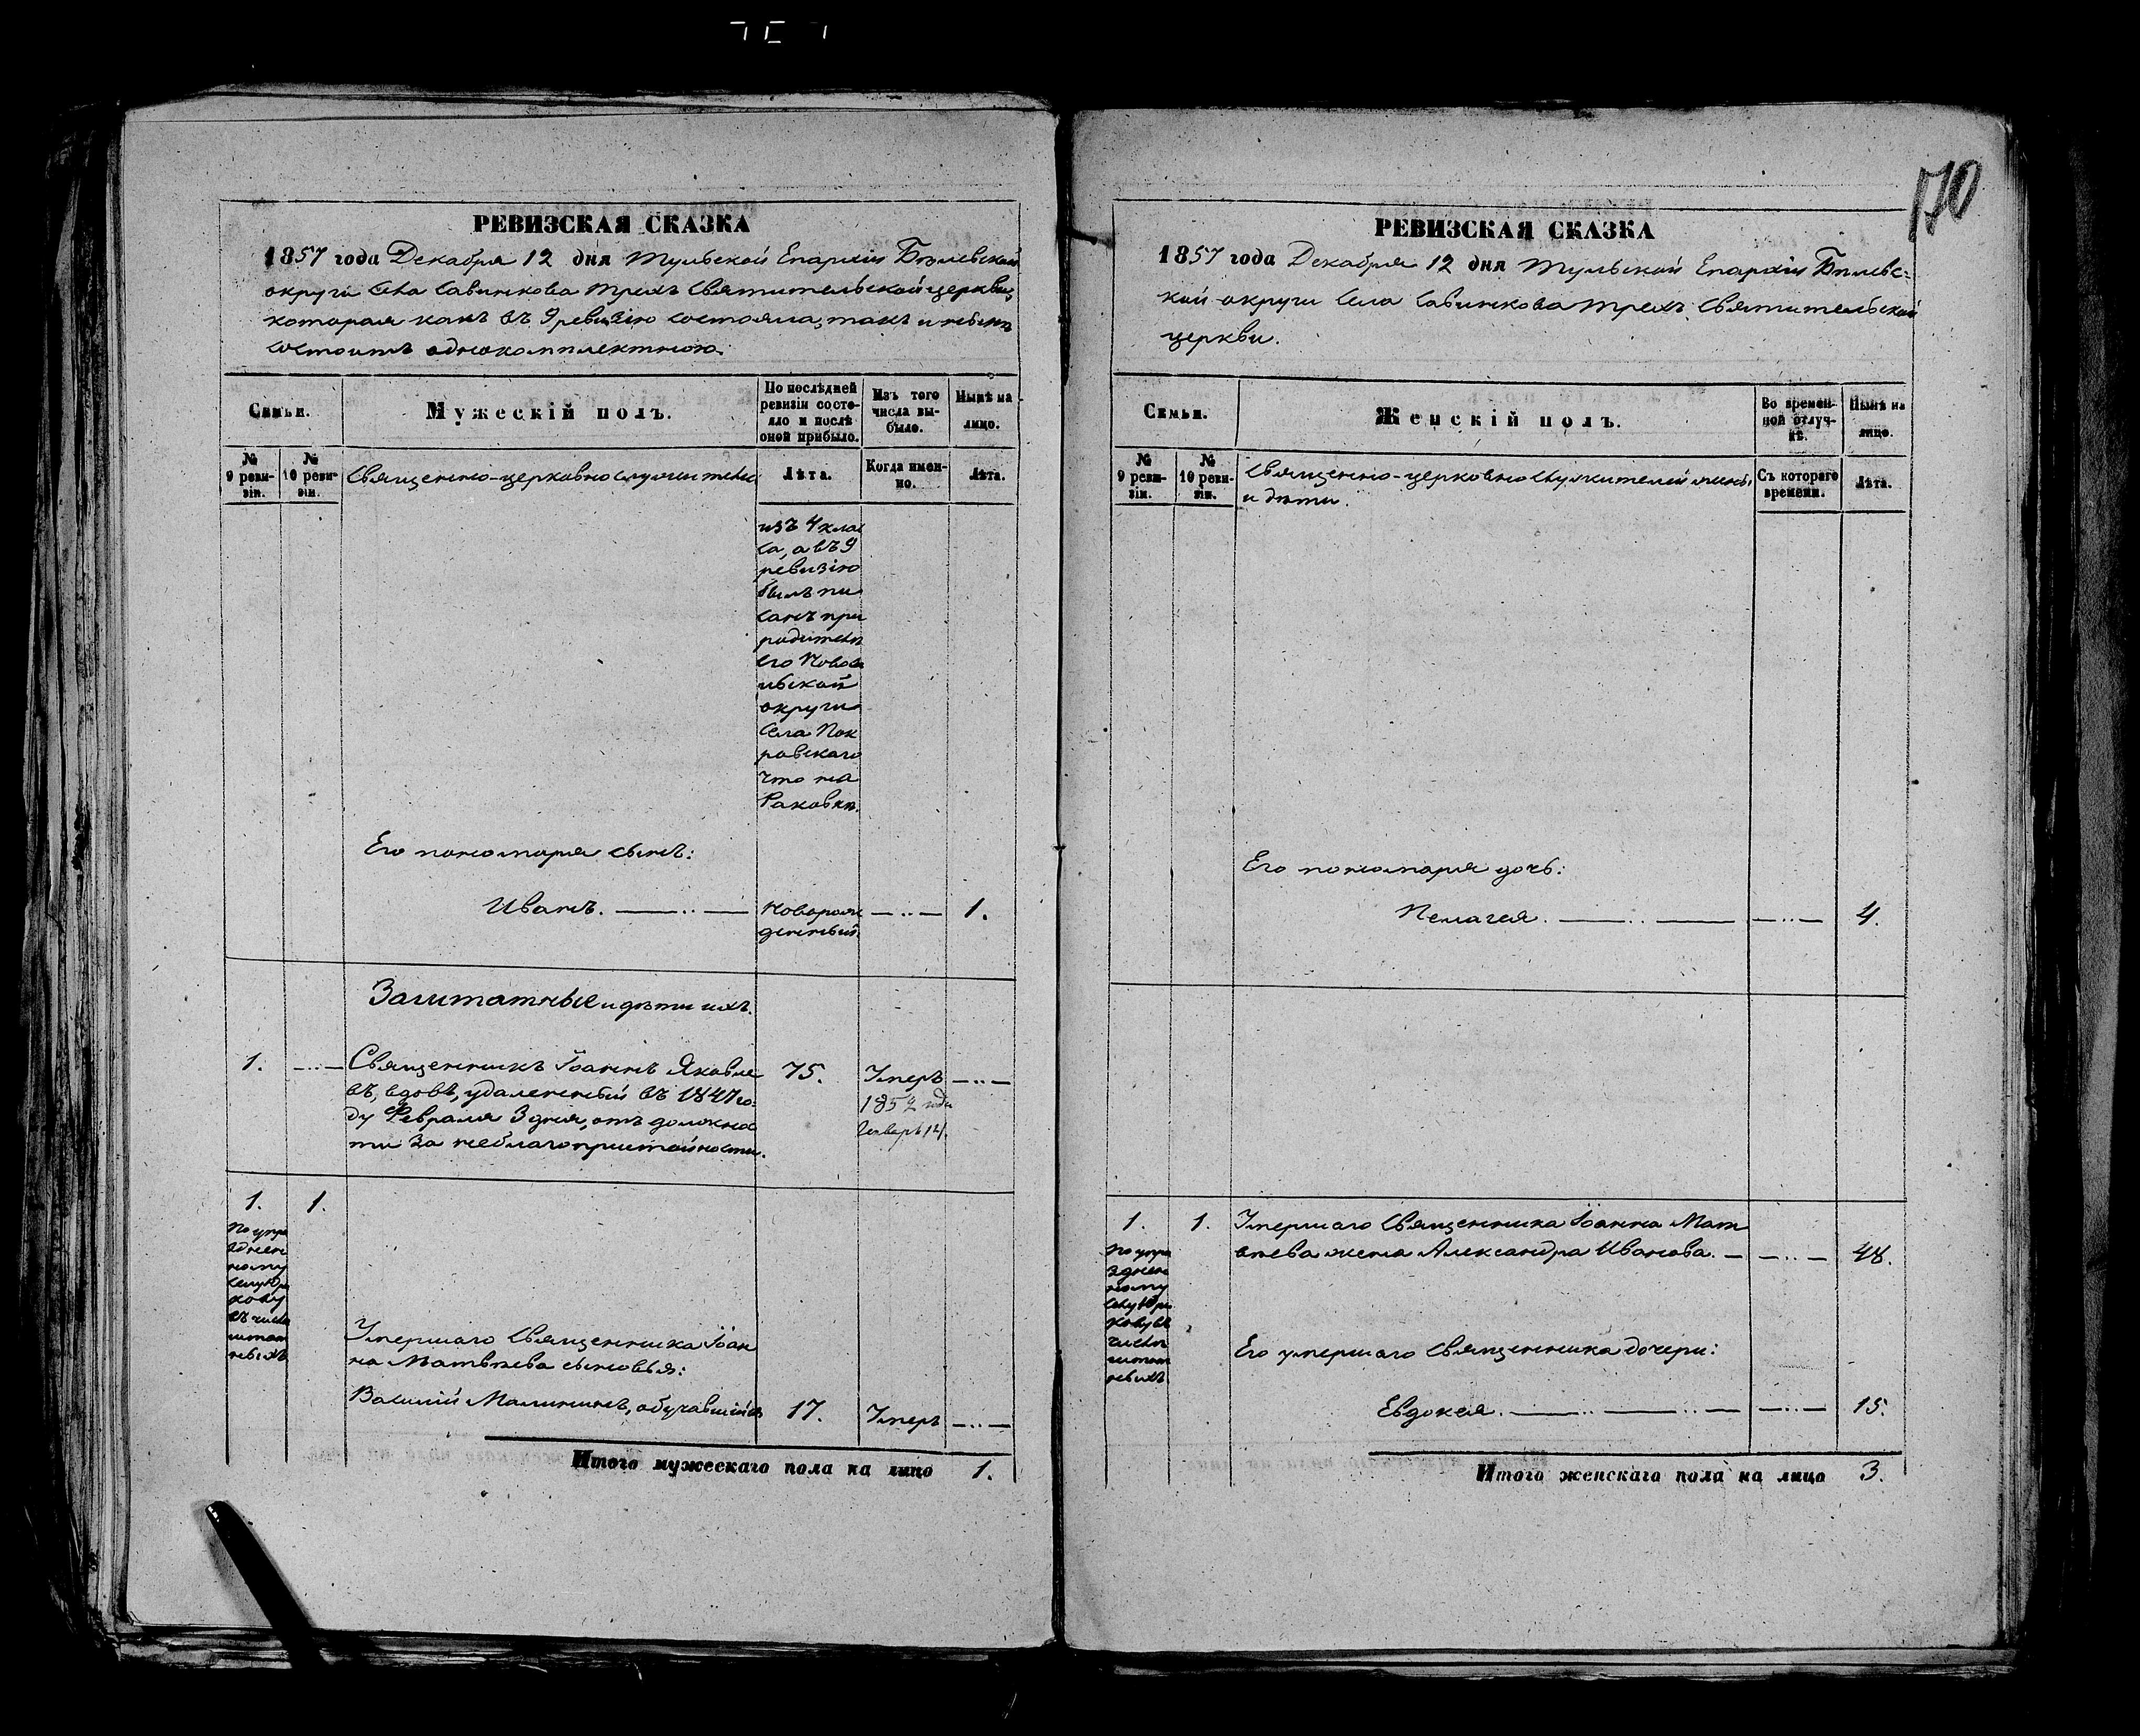 170
РЕВИЗСКАЯ СКАЗКА
1857 года Декабря 12 дня Тульской Епархіи Бѣлевской
округи Села Савинкова Трехъ Святительской церкви,
которая какъ въ 9 ревизію состояла, такъ и нынѣ
состоитъ однокомплектною.
Семьи.
Мужескій полъ.
По послѣдней
ревизіи состо-
яло и послѣ
оной прибыло.
Изъ того
числа вы-
было.
Нынѣ на
лицо.
№
9 реви-
зіи.
№
10 реви-
зіи.
Священно-церковнослужители
Лѣта.
Когда имен-
но.
Лѣта.
изъ 4 клас
са, а въ 9
ревизію
былъ пи
санъ при
родителѣ
его Новоси
льской
округи
Села Пок
ровскаго
что на
Раковкѣ.
Его пономаря сынъ:
Иванъ. новорож 1.
денный.
Заштатные и дѣти ихъ.
1. Священникъ Іоаннъ Яковле 75. Умеръ
въ, вдовъ, удаленный въ 1847 го- 1852 года
ду Февраля 3 дня, отъ должнос Январь 14.
ти за неблагопристойности.
1. 1.
по упра
зднен
ному
селу Юра
кову
въ числѣ
штат
ныхъ
Умершаго Священника Іоан
на Матвѣева сыновья:
Василій Малининъ, обучавшійся 17. Умеръ
Итого мужескаго пола на лицо 1.
РЕВИЗСКАЯ СКАЗКА
1857 года Декабря 12 дня Тульской Епархіи Бѣлевс-
кой округи Села Савинкова Трехъ Святительской
церкви.
Семьи.
Женскій полъ.
Во времен-
ной отлуч-
кѣ.
Нынѣ на
лицо.
№
9 реви-
зіи.
№
10 реви-
зіи.
Священно-церковнослужителей жены,
и дѣти.
Съ котораго
времени.
Лѣта.
Его пономаря дочь:
Пелагея. 4.
1. 1. Умершаго Священника Іоанна Мат
вѣева жена Александра Иванова. 48.
по упра
зднен
ному
селу Юра
кову въ
числѣ
штат
ныхъ
Его умершаго Священника дочери:
Евдокея. 15.
Итого женскаго пола на лицо 3.